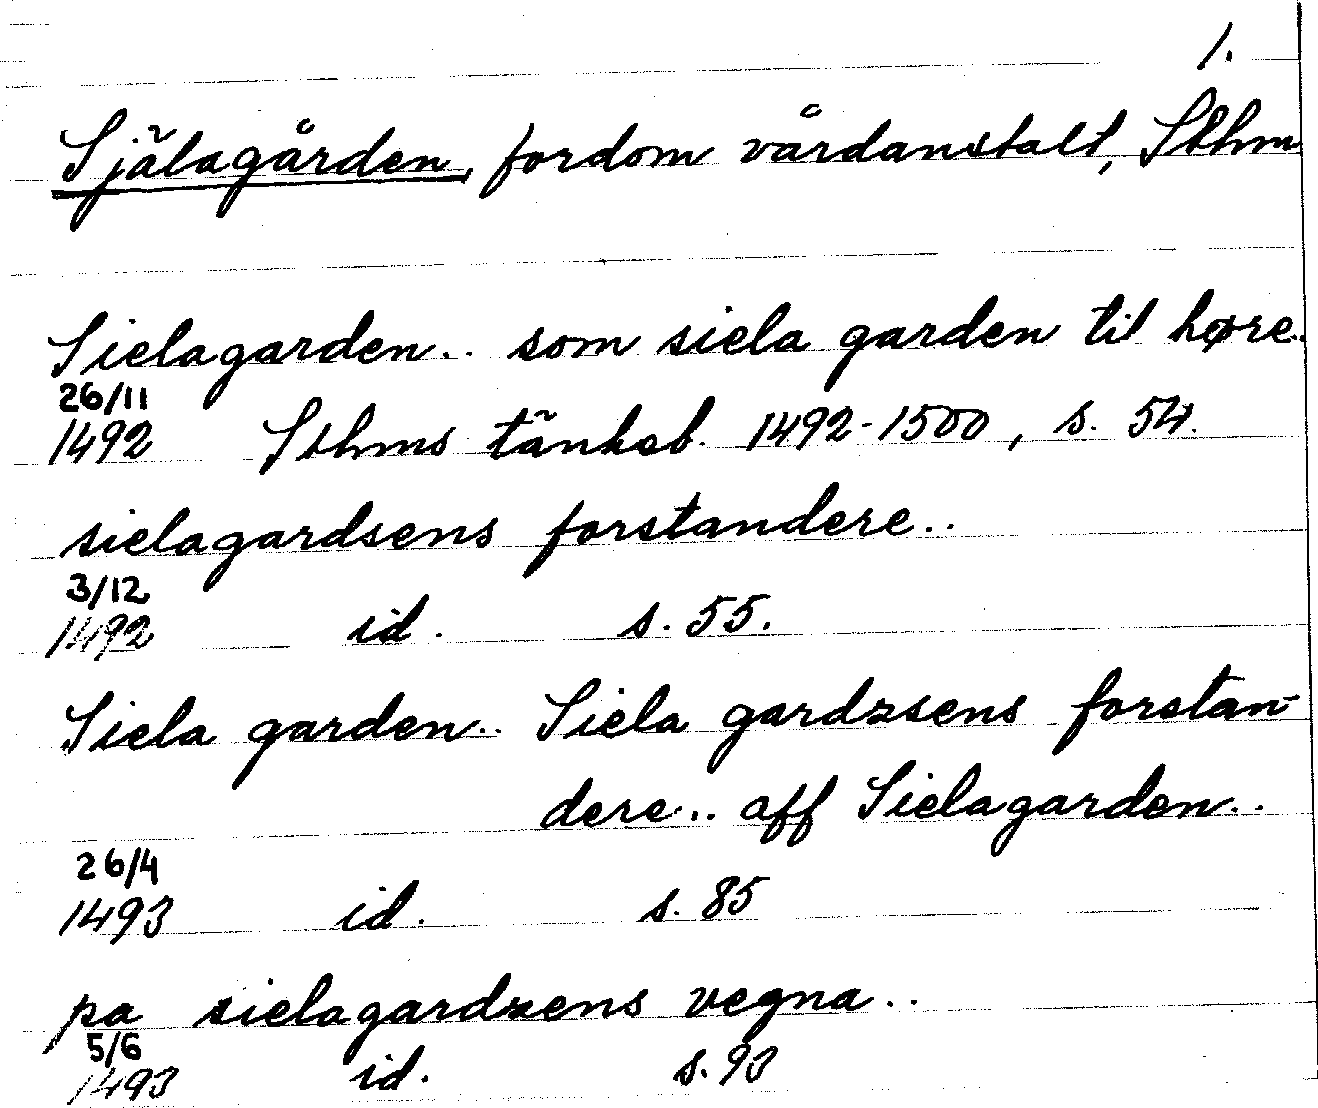 1.
Själagården, fordom vårdanstalt, Sthm
Sielagarden.. som siela garden til høre..
26/11
1492 Sthms tänkeb. 1492-1500, s. 54.
sielagardsens forstandere..
3/12
1492 id. s. 55.
Siela garden.. Siela gardzsens forstan-
dere.. aff Sielagarden..
26/4
1493 id. s. 85
pa sielagardzens vegna..
5/6
1493 id. s. 93